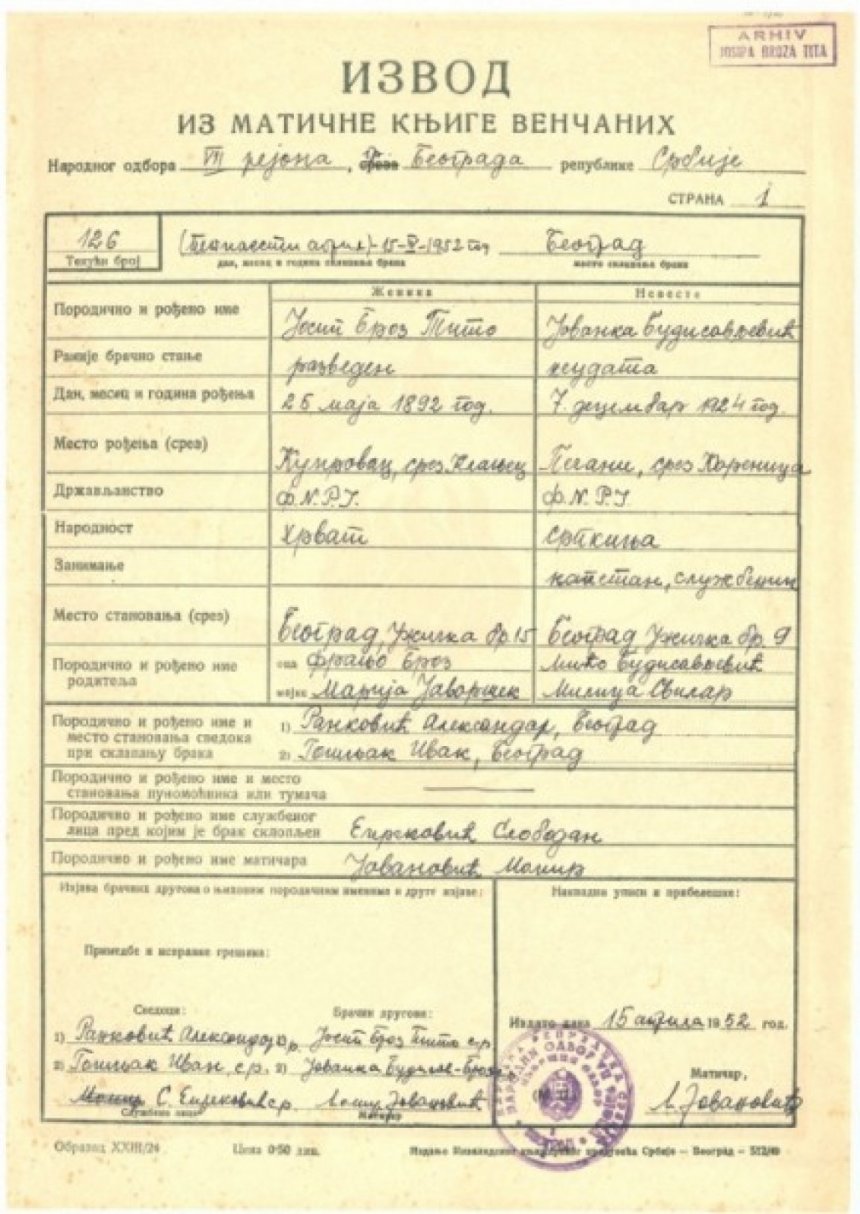 ARHIV
JOSIPA BROZA TITA
ИЗВОД
ИЗ МАТИЧНЕ КЊИГЕ ВЕНЧАНИХ
Народног одбора VII рејона, среза Београда републике Србије
СТРАНА 1
126
Текући број
(Петнаести април)-15-IV-1952 год Београд
дан, месец и година склапања брака место склапања брака
Женика Невесте
Породично и рођено име Јосип Броз Тито Јованка Будисављевић
Раније брачно стање разведен неудата
Дан, месец и година рођења 25 маја 1892 год. 7. децембар 1924 год.
Место рођења (срез) Купровац, срез Клањец Пећани, срез Кореница
Држављанство Ф.Н.Р.Ј. Ф.Н.Р.Ј
Народност Хрват Српкиња
Занимање капетан, службеник
Место становања (срез) Београд, Ужичка бр. 15 Београд Ужичка бр. 9
Породично и рођено име оца Фрањо Броз Мићо Будисављевић
родитеља мајке Марија Јаворшек Милица Свилар
Породично и рођено име и 1) Ранковић Александар, Београд
место становања сведока
при склапању брака 2) Гошњак Иван, Београд
Породично и рођено име и место
становања пуномоћника или тумача
Породично и рођено име службеног
лица пред којим је брак склопљен Слободан
Породично и рођено име матичара Јовановић
Изјава брачних другова о њиховим породичним именима и друге изјаве: Накнадни уписи и прибелешке:
Примедбе и исправке грешака:
Сведоци: Брачни другови:
1) Ранковић Александар с.р. Јосип Броз Тито с.р.
2) Гошњак Иван, с.р. 2) Јованка Будисав-Броз
Издато дана 15 априла 1952 год.
Матичар,
С. с.р. Јовановић Л. Јовановић
Службено лице Матичар
НАРОДНИ ОДБОР VII
БЕОГРАД
Образац XXIII/24 Цена 0·50 дин. Србије — Београд — 512/49